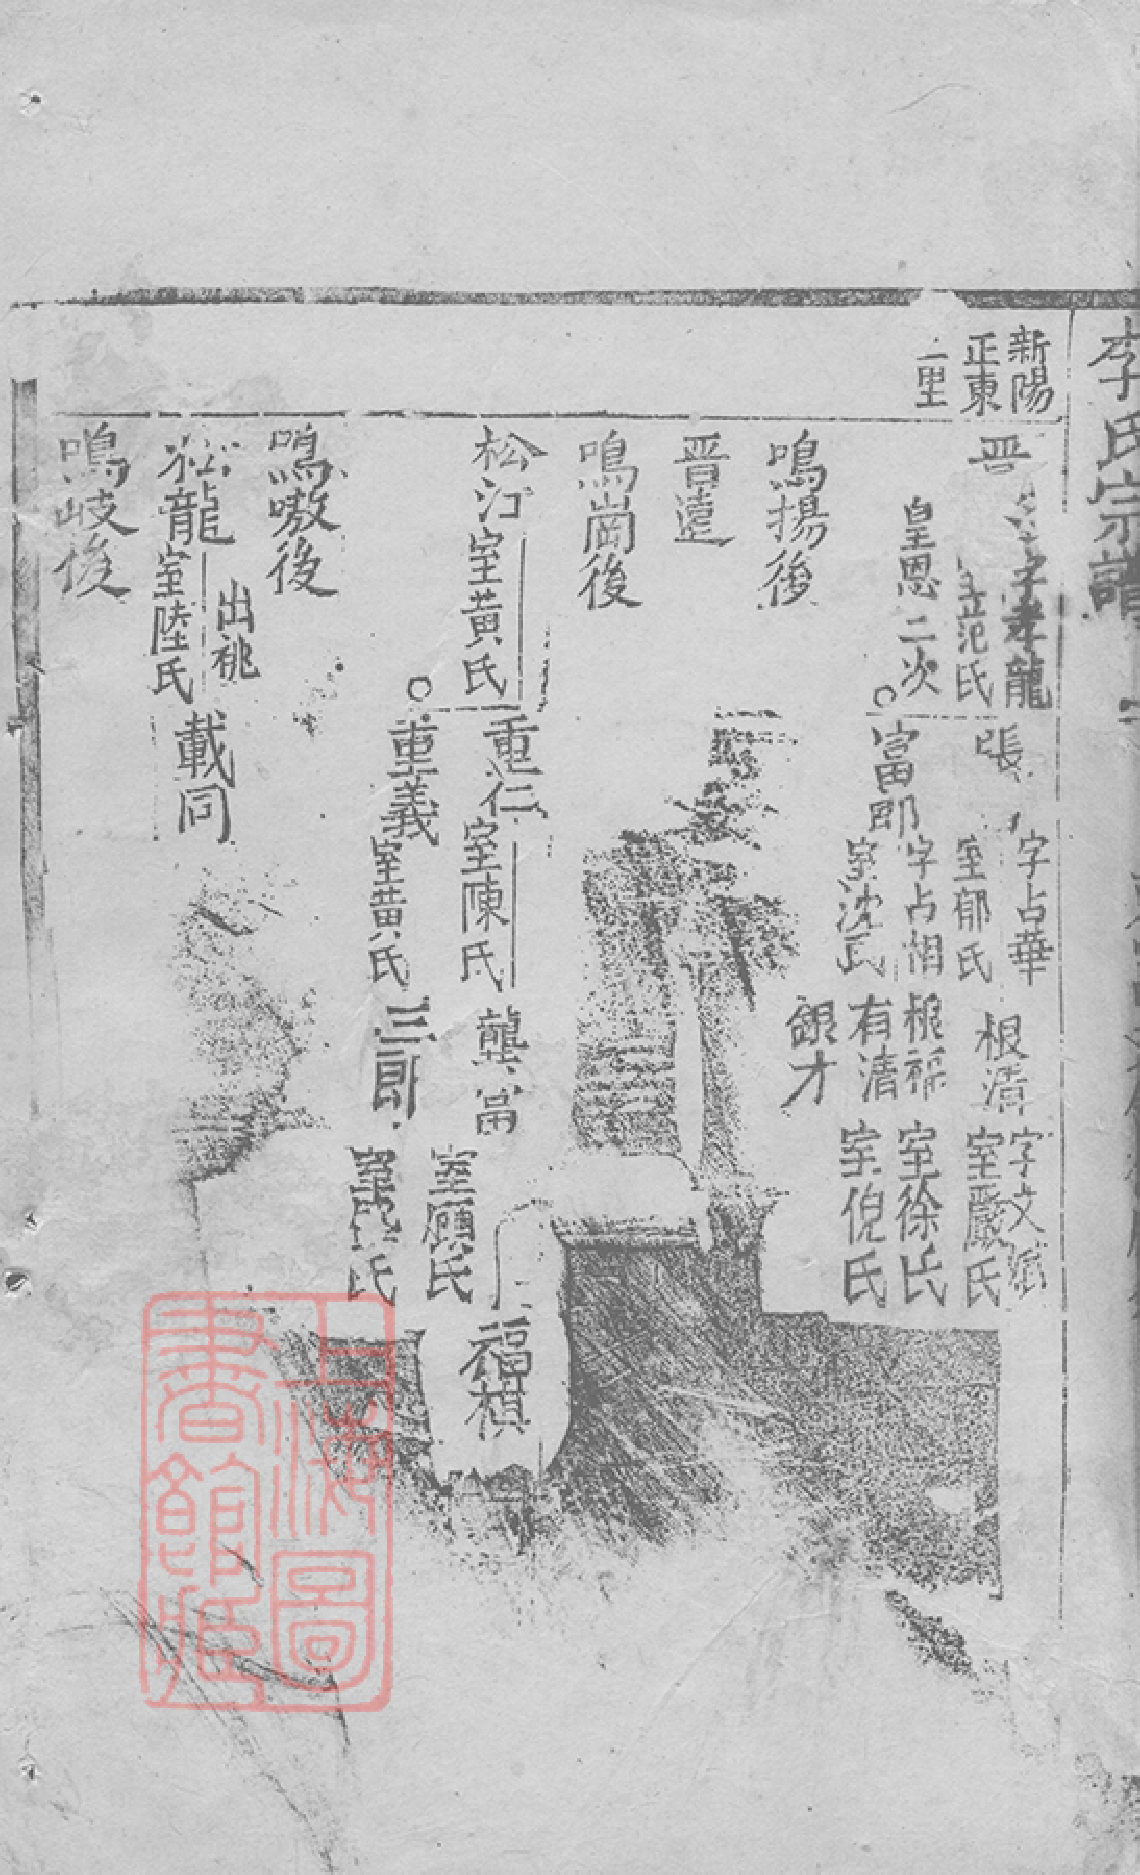 李氏宗譜
新陽
正東
二里
晋
字孝龍
室范氏
皇恩二次
張
字占華
室郁氏
根清
字文
室嚴氏
富郎
字占相
室沈氏
根福
室徐氏
有清
室倪氏
銀才
鳴揚後
晋遠
鳴崗後
松江
室黃氏
重仁
室陳氏
龔富
室顧氏
福祺
重義
室黃氏
三郎
室 氏
鳴嗷後
松龍
出祧
室陸氏
載同
鳴岐後
上海圖
書館藏